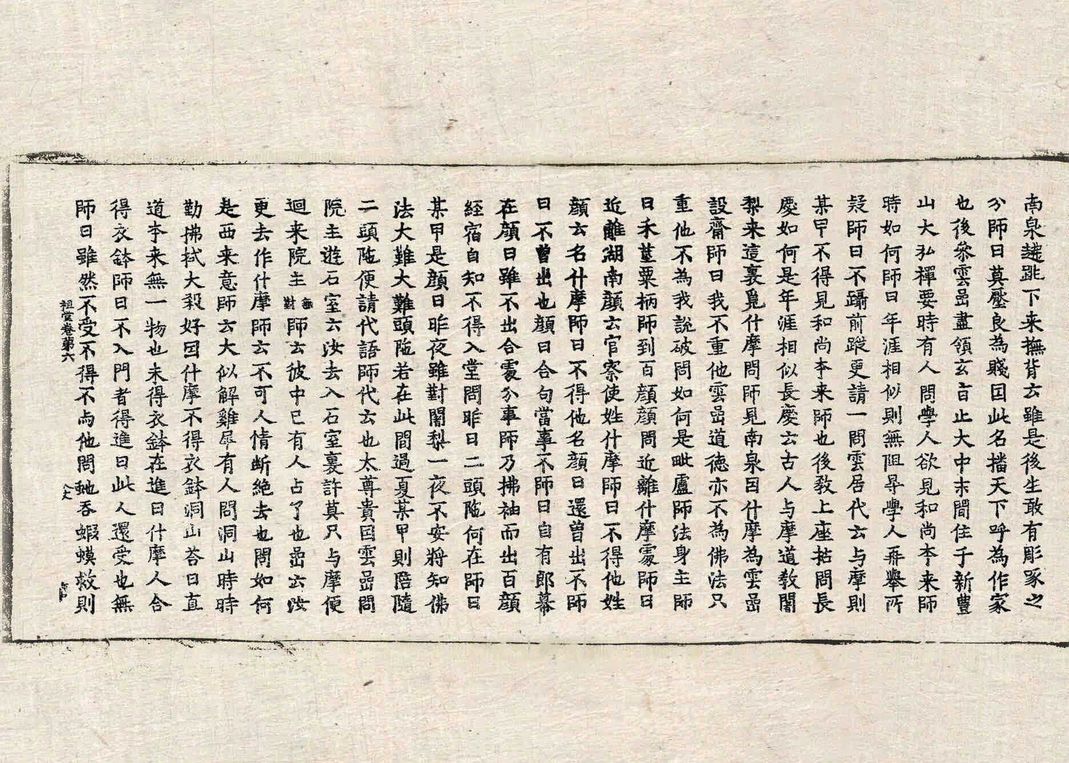 南泉趯跳下来撫背云雖是後生敢有彫琢之
分師曰莫壓良為賤因此名播天下呼為作家
也後叅雲嵒盡領玄旨止大中末間住于新豐
山大弘禪要時有人問學人欲見和尚本来師
時如何師曰年涯相似則無阻㝵學人再舉所
疑師曰不躡前蹤更請一問雲居代云与摩則
某甲不得見和尚本来師也後教上座拈問長
慶如何是年涯相似長慶云古人与摩道教闍
梨来這裏覓什摩問師見南泉因什摩為雲嵒
設齋師曰我不重他雲嵒道德亦不為佛法只
重他不為我說破問如何是毗盧師法身主師
曰禾莖粟柄師到百顏顏問近離什摩處師曰
近離湖南顏云官察使姓什摩師曰不得他姓
顏云名什摩師曰不得他名顏曰還曽出不師
曰不曽出也顏曰合句當事不師曰自有郎幕
在顏曰雖不出合處分事師乃拂袖而出百顏
經宿自知不得入堂問昨日二頭陁何在師曰
某甲是顏曰昨夜雖對闍梨一夜不安將知佛
法大難大難頭陁若在此間過夏某甲則陪隨
二頭陁便請代語師代云也太尊貴因雲嵒問
院主遊石室云汝去入石室裏許莫只与摩便
迴来院主無對師云彼中已有人占了也嵒云汝
更去作什摩師云不可人情断絶去也問如何
是西来意師云大似解雞犀有人問洞山時時
勤拂拭大殺好因什摩不得衣鉢洞山荅曰直
道本来無一物也未得衣鉢在進曰什摩人合
得衣鉢師曰不入門者得進曰此人還受也無
師曰雖然不受不得不与他問虵吞蝦蟇救則
祖堂卷第六